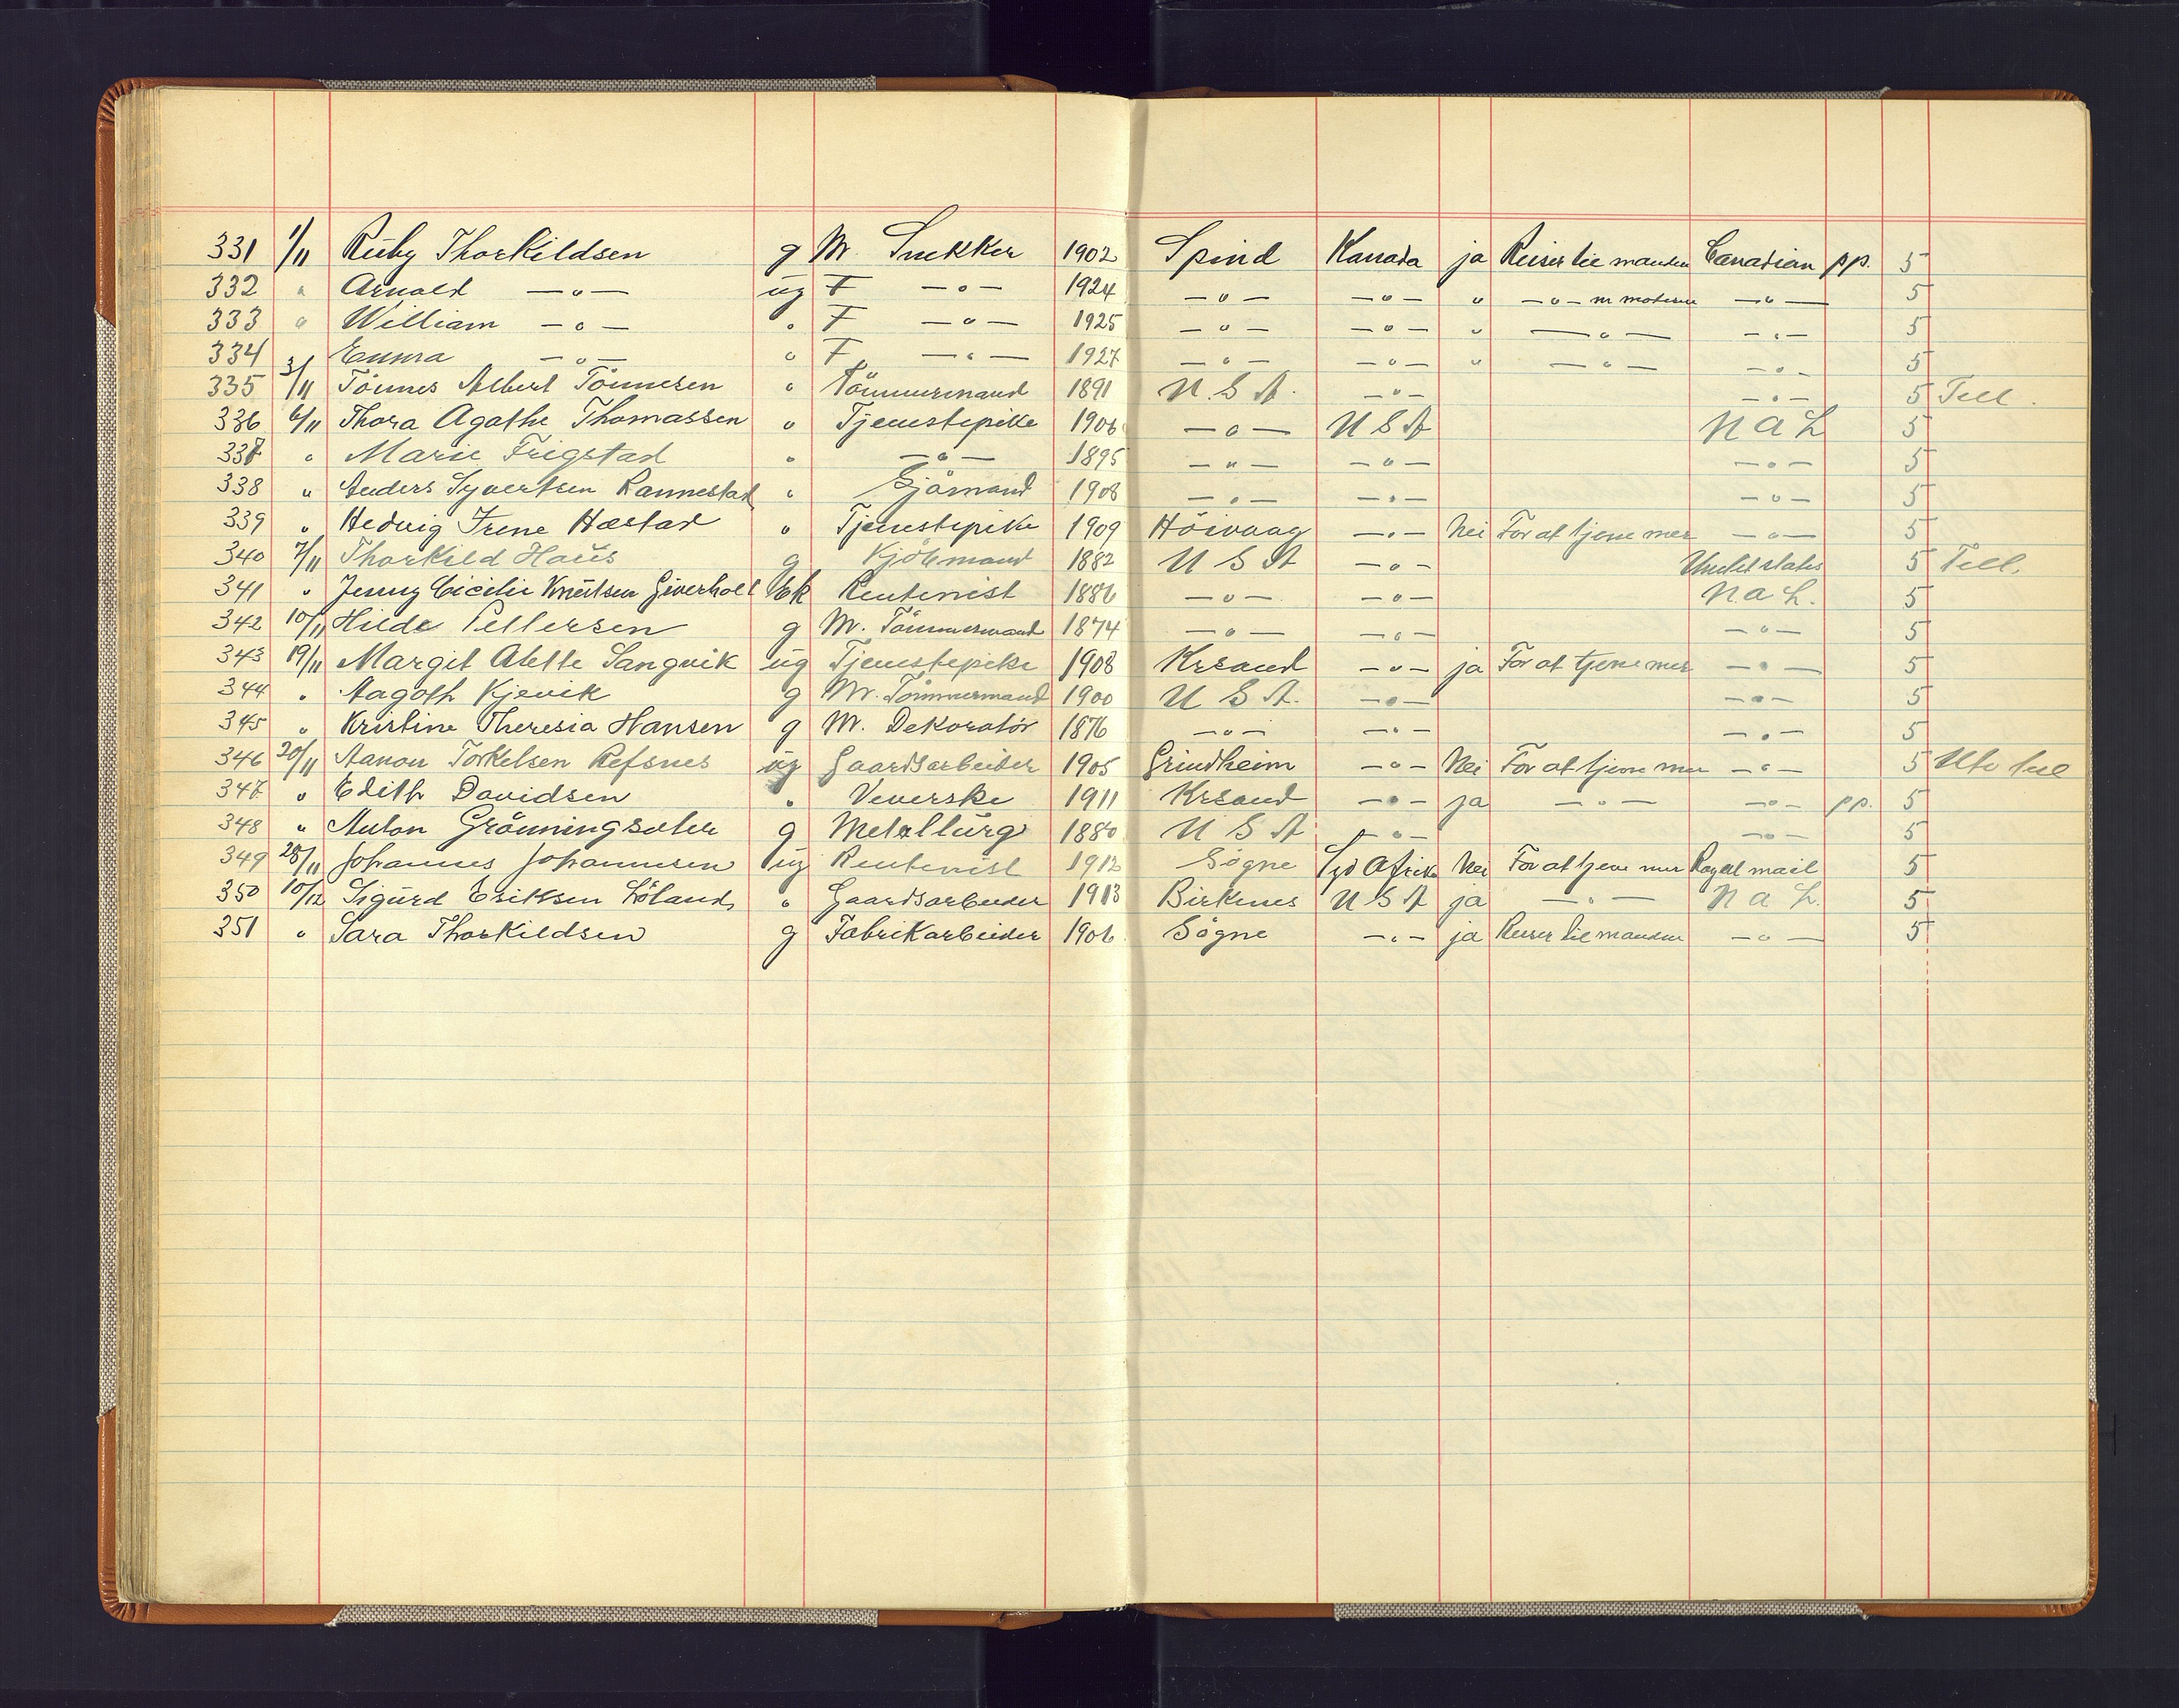 331 1/11 Ruby Thorkildsen g M. Snekker 1902 Spind Kanada ja Reiser til manden Canadian pp. 5
332 " Arnold —"— ug F —"— 1924 —"— —"— " —"— m moderen —"— 5
333 " William —"— " F —"— 1925 —"— —"— " —"— —"— 5
334 " Emma —"— " F —"— 1927 —"— —"— " —"— —"— 5
335 3/11 Tönnes Albert Tönnesen " Tömmermand 1891 U.S.A. —"— —"— 5 Till.
336 6/11 Thora Agathe Thomassen " Tjenestepike 1906 —"— U S A N A L 5
337 " Marie Frigstad " —"— 1895 —"— —"— —"— 5
338 " Anders Syvertsen Rannestad " Sjömand 1908 —"— —"— —"— 5
339 " Hedvig Irene Hæstad " Tjenestepike 1909 Höivaag —"— Nei For at tjene mer —"— 5
340 7/11 Thorkild Haus g Kjöbmand 1882 U S A —"— United states 5 Till.
341 " Jenny Cicilie Knutsen Giverholt Ek Rentenist 1886 —"— —"— N.A.L. 5
342 10/11 Hilda Pettersen g M. Tömmermand 1874 —"— —"— —"— 5
343 19/11 Margit Alette Langvik ug Tjenestepike 1908 Krsand —"— ja For at tjene mer —"— 5
344 " Aagoth Kjevik g M. Tömmermand 1900 U S A. —"— —"— 5
345 " Kristine Theresia Hansen g M. Dekoratör 1876 —"— —"— —"— 5
346 20/11 Aanon Torkelsen Refsnes ug Gaardsarbeider 1905 Grindheim —"— Nei For at tjene mer —"— 5 Uto till
347 " Edith Davidsen " Veverske 1911 Krsand —"— ja —"— —"— pp. 5
348 " Anton Grönningsæter g Metallurg 1880 U S A —"— —"— 5
349 28/11 Johannes Johannesen ug Rentenist 1912 Sögne Syd Afrika Nei For at tjene mer Royal mail 5
350 10/12 Sigurd Eriksen Löland " Gaardsarbeider 1913 Birkenes U S A ja —"— N A L. 5
351 " Sara Thorkildsen g Fabrikarbeider 1906 Sögne —"— ja Reiser til manden —"— 5